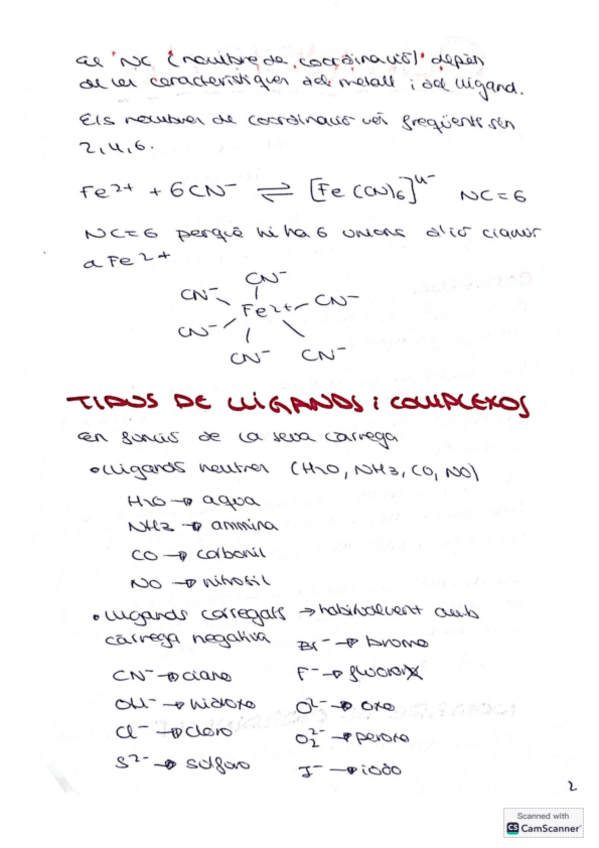 El "NC (nombre de coordinació)" depèn
de les característiques del metall i del lligand.
Els nombres de coordinació més freqüents són
2, 4, 6.
Fe2+ + 6CN- ⇌ [Fe(CN)6]4- NC=6
NC=6 perquè hi ha 6 unions d'ió cianur
a Fe2+
CN-
CN- CN-
Fe2+
CN-
CN- CN-
TIPUS DE LLIGANDS i COMPLEXOS
En funció de la seva càrrega
• Lligands neutres (H2O, NH3, CO, NO)
H2O → aqua
NH3 → ammina
CO → carbonil
NO → nitrosil
• Lligands carregats → habitualment amb
càrrega negativa
Br- → bromo
CN- → ciano F- → fluoro
OH- → hidroxo O2- → oxo
Cl- → cloro O2 2- → peroxo
S2- → sulfuro I- → iodo
2
Scanned with
CS CamScanner